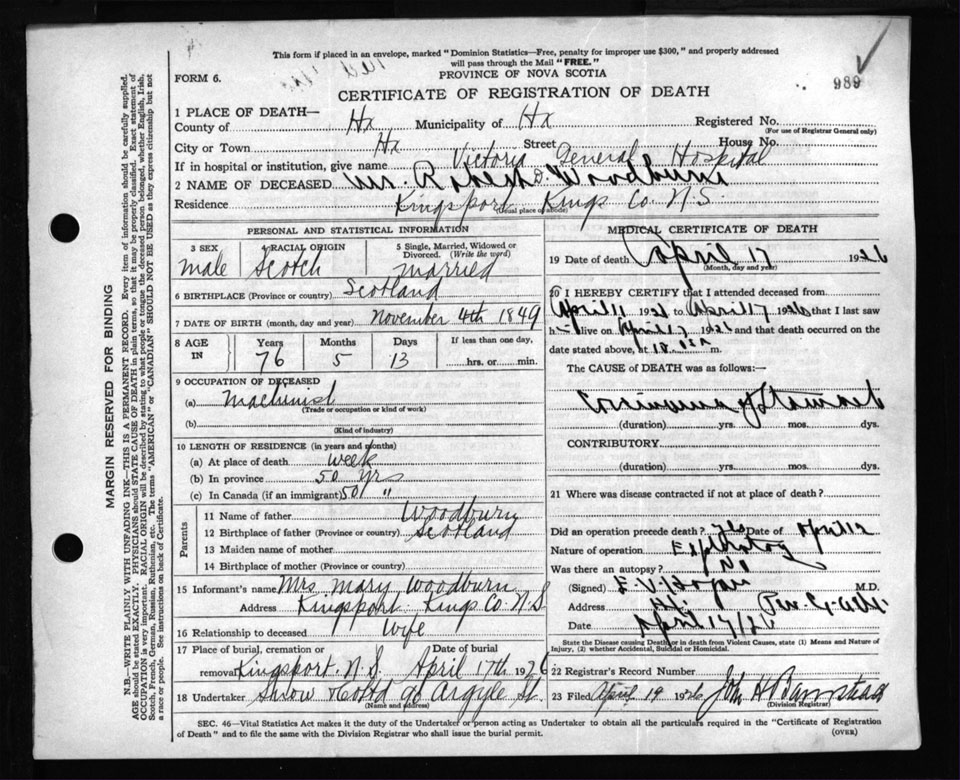 This form if placed in an envelope, marked "Dominion Statistics—Free, penalty for improper use $300," and properly addressed
will pass through the Mail "FREE."
989
FORM 6.
PROVINCE OF NOVA SCOTIA
CERTIFICATE OF REGISTRATION OF DEATH
1 PLACE OF DEATH—
County of Hx Municipality of Hx Registered No.
(For use of Registrar General only)
City or Town Hx Street House No.
If in hospital or institution, give name Victoria General Hospital
2 NAME OF DECEASED Mr. Robert Woodburn
Residence Kingsport Kings Co. N.S.
(Usual place of abode)
PERSONAL AND STATISTICAL INFORMATION
3 SEX male
4 RACIAL ORIGIN Scotch
5 Single, Married, Widowed or Divorced. (Write the word) married
6 BIRTHPLACE (Province or country) Scotland
7 DATE OF BIRTH (month, day and year) November 4th 1849
8 AGE IN Years Months Days If less than one day,
76 5 13 hrs. or min.
9 OCCUPATION OF DECEASED
(a) Machinist
(Trade or occupation or kind of work)
(b)
(Kind of industry)
10 LENGTH OF RESIDENCE (in years and months)
(a) At place of death week
(b) In province 50 yrs
(c) In Canada (if an immigrant) 50 "
Parents
11 Name of father Woodburn
12 Birthplace of father (Province or country) Scotland
13 Maiden name of mother
14 Birthplace of mother (Province or country)
15 Informant's name Mrs Mary Woodburn
Address Kingsport Kings Co. N.S.
16 Relationship to deceased Wife
17 Place of burial, cremation or removal Kingsport, N.S. Date of burial April 17th 1926
18 Undertaker Snow 90 Argyle St.
(Name and address)
MEDICAL CERTIFICATE OF DEATH
19 Date of death April 17 1926
(Month, day and year)
20 I HEREBY CERTIFY that I attended deceased from
April 11 1926 to April 17 1926 that I last saw
h alive on April 17 1926 and that death occurred on
date stated above, at m.
The CAUSE of DEATH was as follows:—
Carcinoma of Stomach
(duration) yrs. mos. dys.
CONTRIBUTORY
(duration) yrs. mos. dys.
21 Where was disease contracted if not at place of death?
Did an operation precede death? Yes Date of April 12
Nature of operation
Was there an autopsy? No
(Signed) E. V. Hogan M.D.
Address Hx
Date April 17/26
State the Disease causing Death, or in death from Violent Causes, state (1) Means and Nature of
Injury, (2) whether Accidental, Suicidal or Homicidal.
22 Registrar's Record Number
23 Filed April 19 1926 John H Barnstead
(Division Registrar)
SEC. 46—Vital Statistics Act makes it the duty of the Undertaker or person acting as Undertaker to obtain all the particulars required in the "Certificate of Registration
of Death" and to file the same with the Division Registrar who shall issue the burial permit.
(OVER)
MARGIN RESERVED FOR BINDING
N.B.—WRITE PLAINLY WITH UNFADING INK—THIS IS A PERMANENT RECORD. Every item of information should be carefully supplied.
AGE should be stated EXACTLY. PHYSICIANS should STATE CAUSE OF DEATH in plain terms, so that it may be properly classified. Exact statement of
OCCUPATION is very important. RACIAL ORIGIN will be described by stating to what people or tongue the deceased person belonged, whether English, Irish,
Scotch, French, German, Russian, Ruthenian, etc. The terms "AMERICAN" or "CANADIAN" SHOULD NOT BE USED as they express citizenship but not
a race or people. See instructions on back of Certificate.